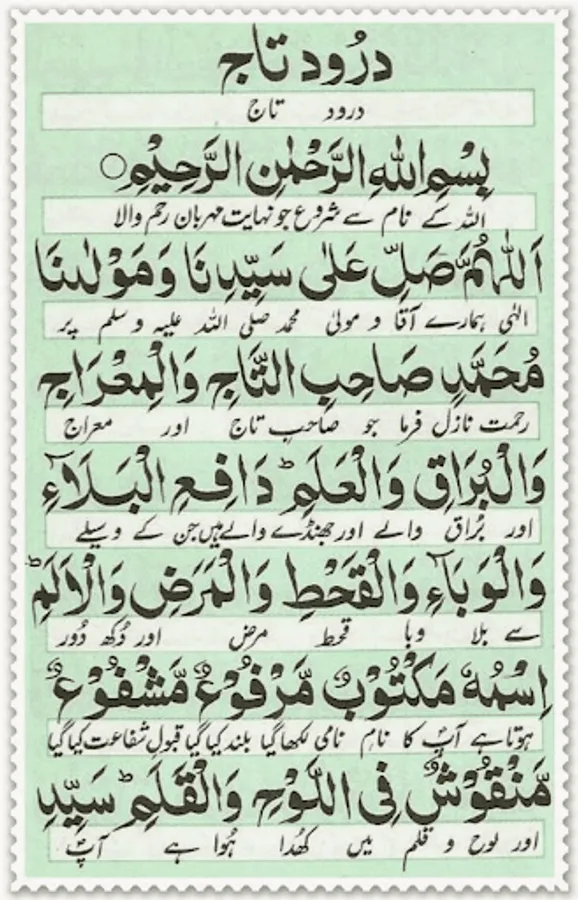 درُود تاج
درود تاج
بِسْمِ اللهِ الرَّحْمٰنِ الرَّحِيْمِ ○
اللہ کے نام سے شروع جو نہایت مہربان رحم والا
اَللّٰهُمَّ صَلِّ عَلٰى سَيِّدِنَا وَمَوْلٰىنَا
الٰہی ہمارے آقا و مولیٰ محمد صلی اللہ علیہ وسلم پر
مُحَمَّدٍ صَاحِبِ التَّاجِ وَالْمِعْرَاجِ
رحمت نازل فرما جو صاحبِ تاج اور معراج
وَالْبُرَاقِ وَالْعَلَمِ ؕ دَافِعِ الْبَلَآءِ
اور بُراق والے اور جھنڈے والے ہیں جن کے وسیلے
وَالْوَبَآءِ وَالْقَحَطِ وَالْمَرَضِ وَالْاَلَمِ ؕ
سے بلا وبا قحط مرض اور دُکھ دُور
اِسْمُهٗ مَكْتُوْبٌ مَّرْفُوْعٌ مَّشْفُوْعٌ
ہوتا ہے آپؐ کا نام نامی لکھا گیا بلند کیا گیا قبول شفاعت کیا گیا
مَّنْقُوْشٌ فِى اللَّوْحِ وَالْقَلَمِ ؕ سَيِّدِ
اور لوح و قلم میں کھُدا ہُوا ہے آپؐ